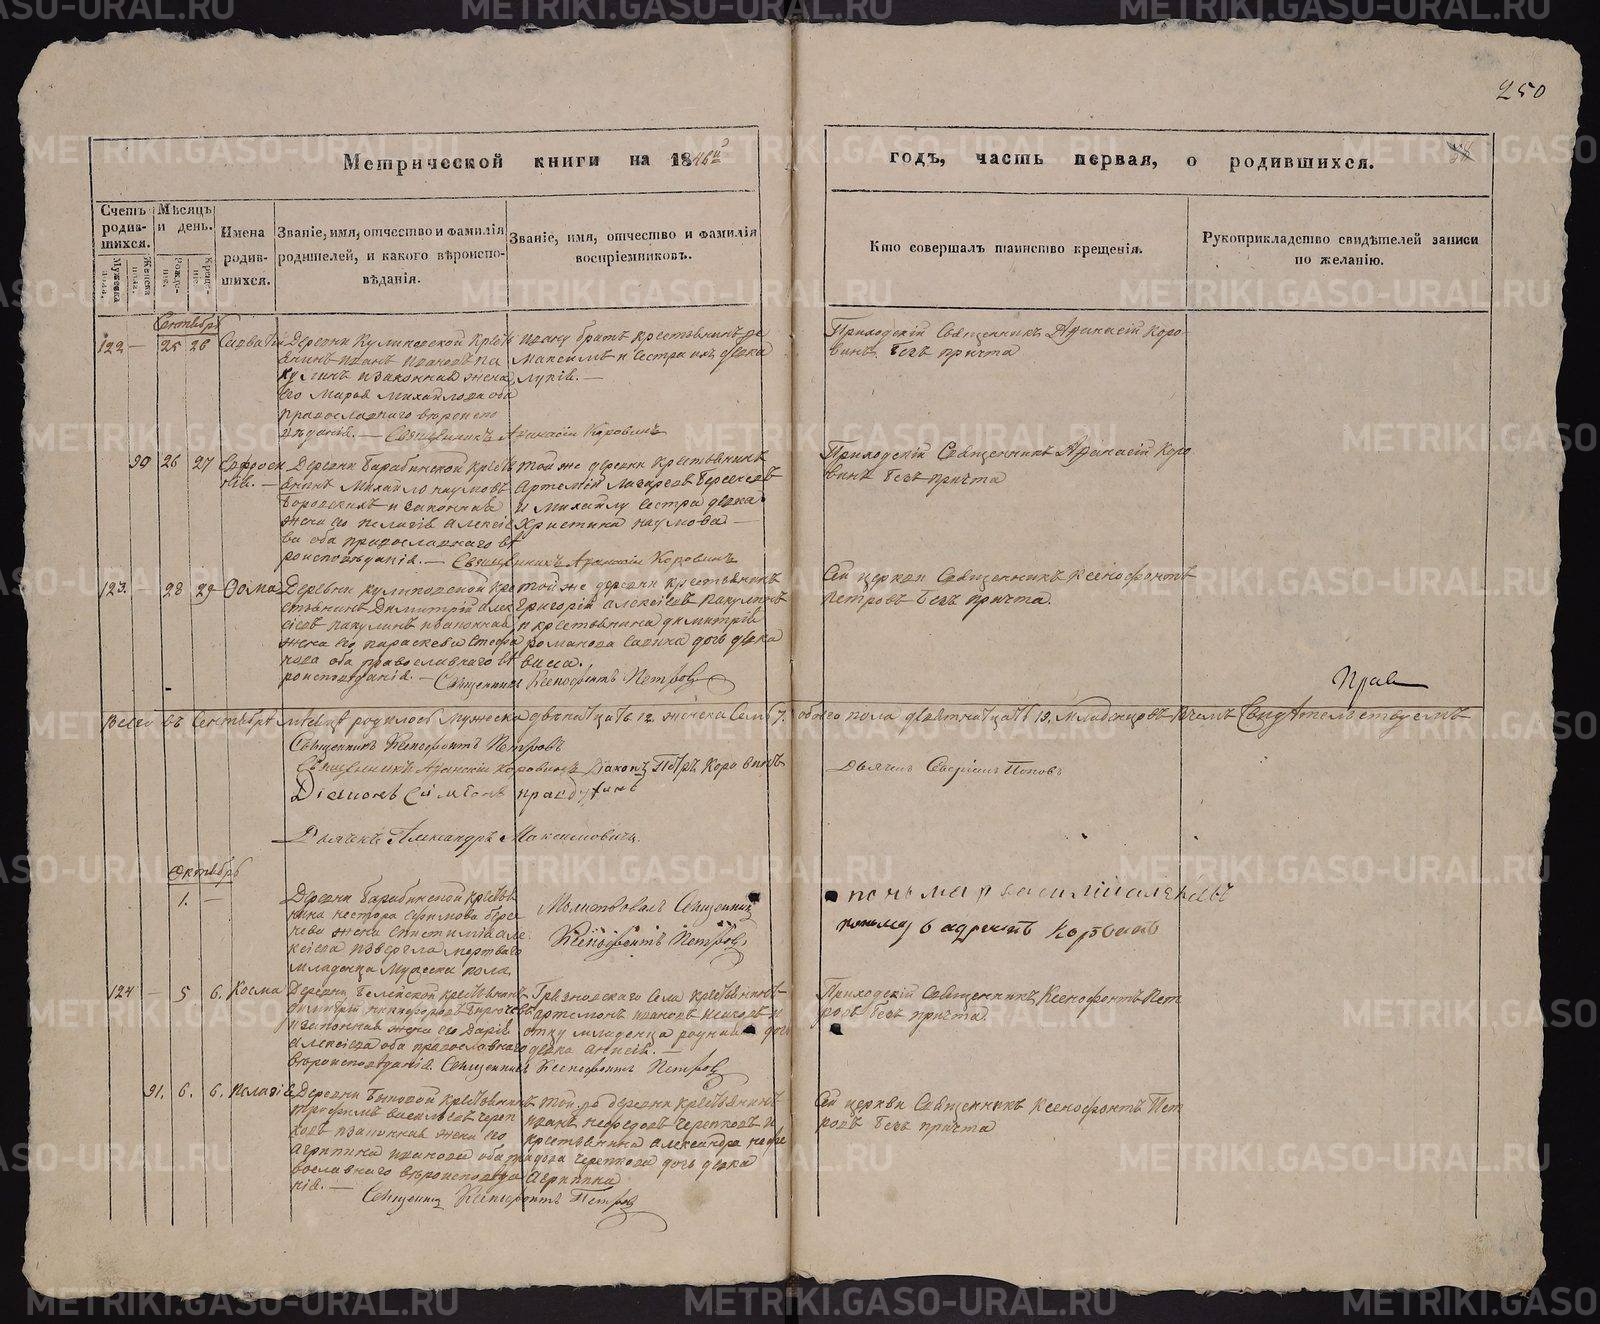 250
Метрической книги на 1846й
годъ, часть первая, о родившихся.
Счетъ родив-шихся.
Мѣсяцъ и день.
Имена родив-шихся.
Званіе, имя, отчество и фамилія родителей, и какого вѣроиспо-вѣданія.
Званіе, имя, отчество и фамилія воспріемниковъ.
Кто совершалъ таинство крещенія.
Рукоприкладство свидѣтелей записи по желанію.
Мужеска пола.
Женска пола.
Рожде-ніе.
Креще-ніе.
Сентябрь
122 — 25 26
Деревни Куликовской Кресть
янинъ Иванъ Ивановъ Па
кулинъ и законная жена
его Марья Михайлова оба
православнаго вѣроиспо
вѣданія. — Священникъ Афанасій Коровинъ
Ивану братъ крестьянинъ же
Максимъ и сестра ихъ девка
Лукія. —
Приходскій Священникъ Афанасій Коро-
винъ безъ причта
90 26 27
Деревни Барабинской Кресть
янинъ Михайло Наумовъ
и законная
жена его Пелагія Алексіе
ва оба православнаго вѣ
роисповѣданія. — Священникъ Афанасій Коровинъ
той же деревни крестьянинъ
Артемій Лазаревъ
и Михайлу сестра девка
Христина Наумова —
Приходскій Священникъ Афанасій Коро
винъ безъ причта
123. — 28 29 Фома
Деревни Куликовской Кре
стьянинъ Димитрій Алек
сіевъ Пакулинъ и законная
жена его Параскева Стефа
нова оба православнаго вѣ
роисповѣданія. — Священникъ Ксенофонтъ Петровъ
той же деревни крестьянинъ
Григорій Алексіевъ Пакулинъ
и крестьянина Димитрія
Романова дочь девка
Сей церкви Священникъ Ксенофонтъ
Петровъ безъ причта.
Прав
Всего въ Сентябрѣ мѣсяцѣ родилось мужеска двѣнатцать 12. женска семь 7. обоего пола девятнатцать 19. младенцовъ въ чемъ Свидѣтельствуемъ
Священникъ Ксенофонтъ Петровъ
Священникъ Афанасій Коровинъ Діаконъ Петръ Коровинъ
Діаконъ Симеонъ
Дьячекъ Поповъ
Дьячекъ Александръ Максимовичъ
Октябрь
1. —
Деревни Барабинской кресть
янина Нестора
жена
извергла мертваго
младенца мужеска пола
Молитвовалъ Священникъ
Ксенофонтъ Петровъ
пономарь василій
124 — 5 6. Косма
Деревни крестьянинъ
Димитрій Никифоровъ
и законная жена его Дарія
Алексіева оба православнаго
вѣроисповѣданія. Священникъ Ксенофонтъ Петровъ
Грязновскаго села крестьянинъ
Артемонъ Ивановъ и
отцу младенца родная дочь
девка Анисія. —
Приходскій Священникъ Ксенофонтъ Пет
ровъ безъ причта.
91. 6. 6. Пелагія
Деревни Быковой крестьянинъ
Трофимъ Васильевъ Череп
ковъ и законная жена его
Агрипина Иванова оба пра
вославнаго вѣроисповѣда
нія. — Священникъ Ксенофонтъ Петровъ
той же деревни крестьянинъ
Иванъ Черепковъ и
крестьянина Александра
Черепкова дочь девка
Агрипина
Сей церкви Священникъ Ксенофонтъ Пет
ровъ безъ причта
METRIKI.GASO-URAL.RU